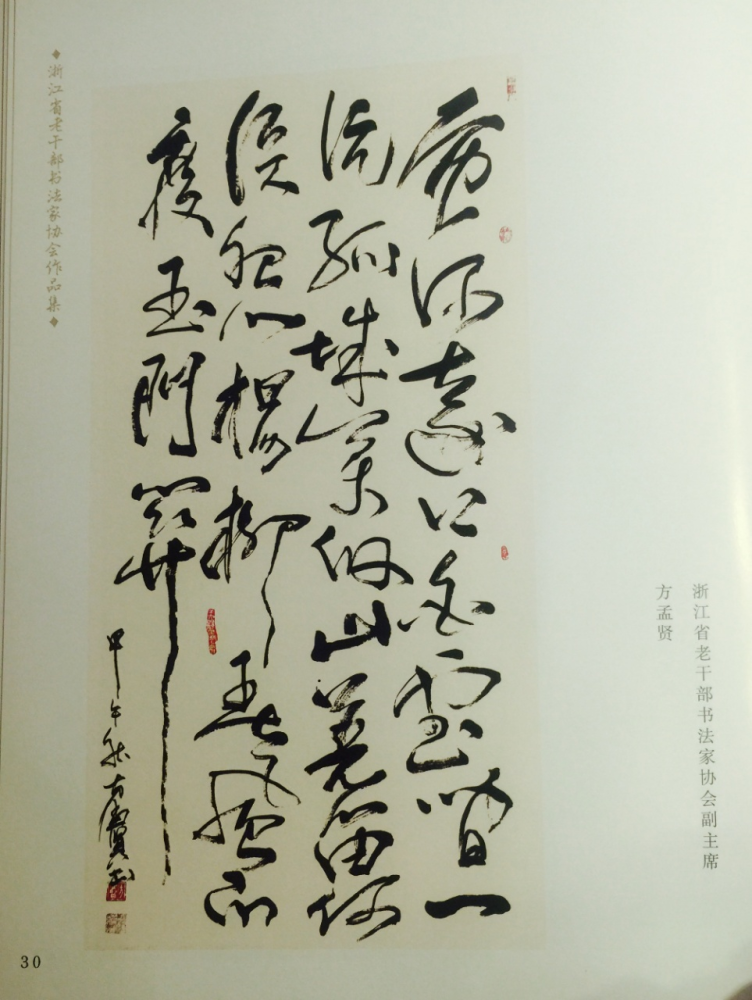 浙江省老干部书法家协会副主席
方孟贤
黄河遠上白雲間一
片孤城萬仞山羌笛何
須怨楊柳春風不
度玉門關
甲午秋方
◆浙江省老干部书法家协会作品集◆
30